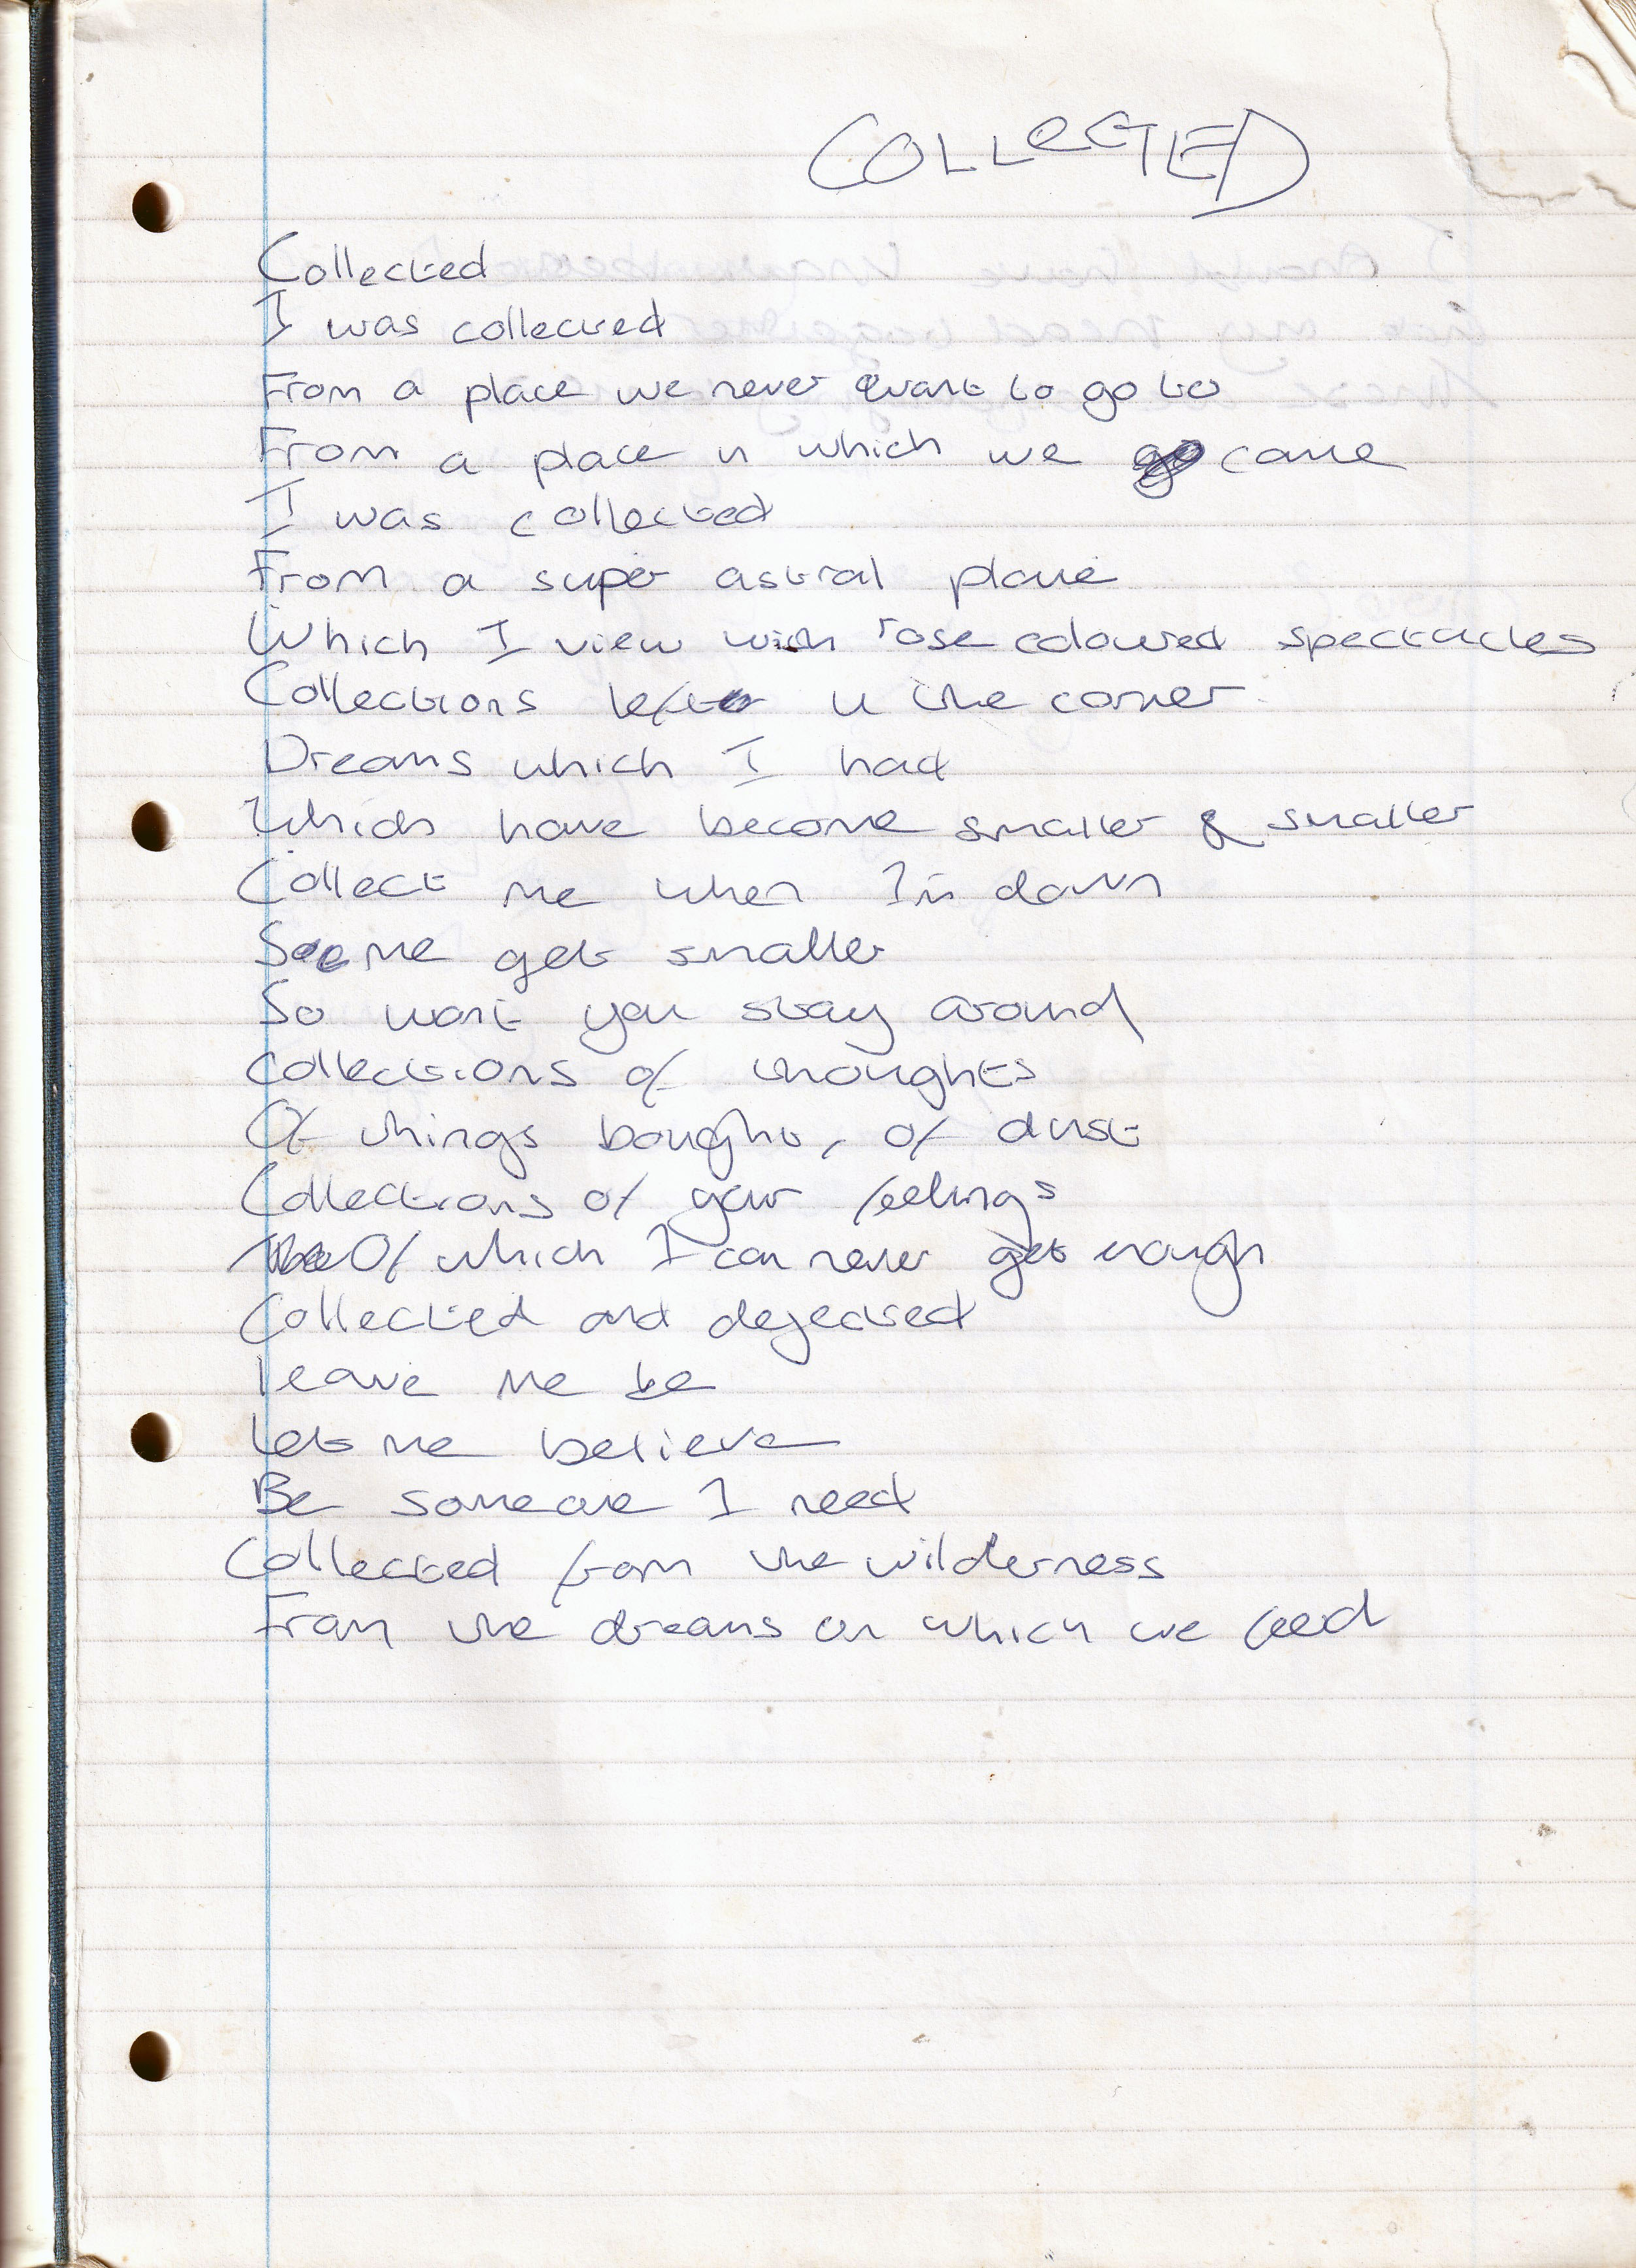 COLLECTED
Collected
I was collected
From a place we never want to go to
From a place in which we came
I was collected
From a super astral plane
Which I view with rose coloured spectacles
Collections left in the corner
Dreams which I had
Which have become smaller & smaller
Collect me when I'm down
See me get smaller
So wont you stay around
Collections of thoughts
Of things bought, of dust
Collections of your feelings
Of which I can never get enough
Collected and dejected
Leave me be
Let me believe
Be someone I need
Collected from the wilderness
From the dreams on which we feed